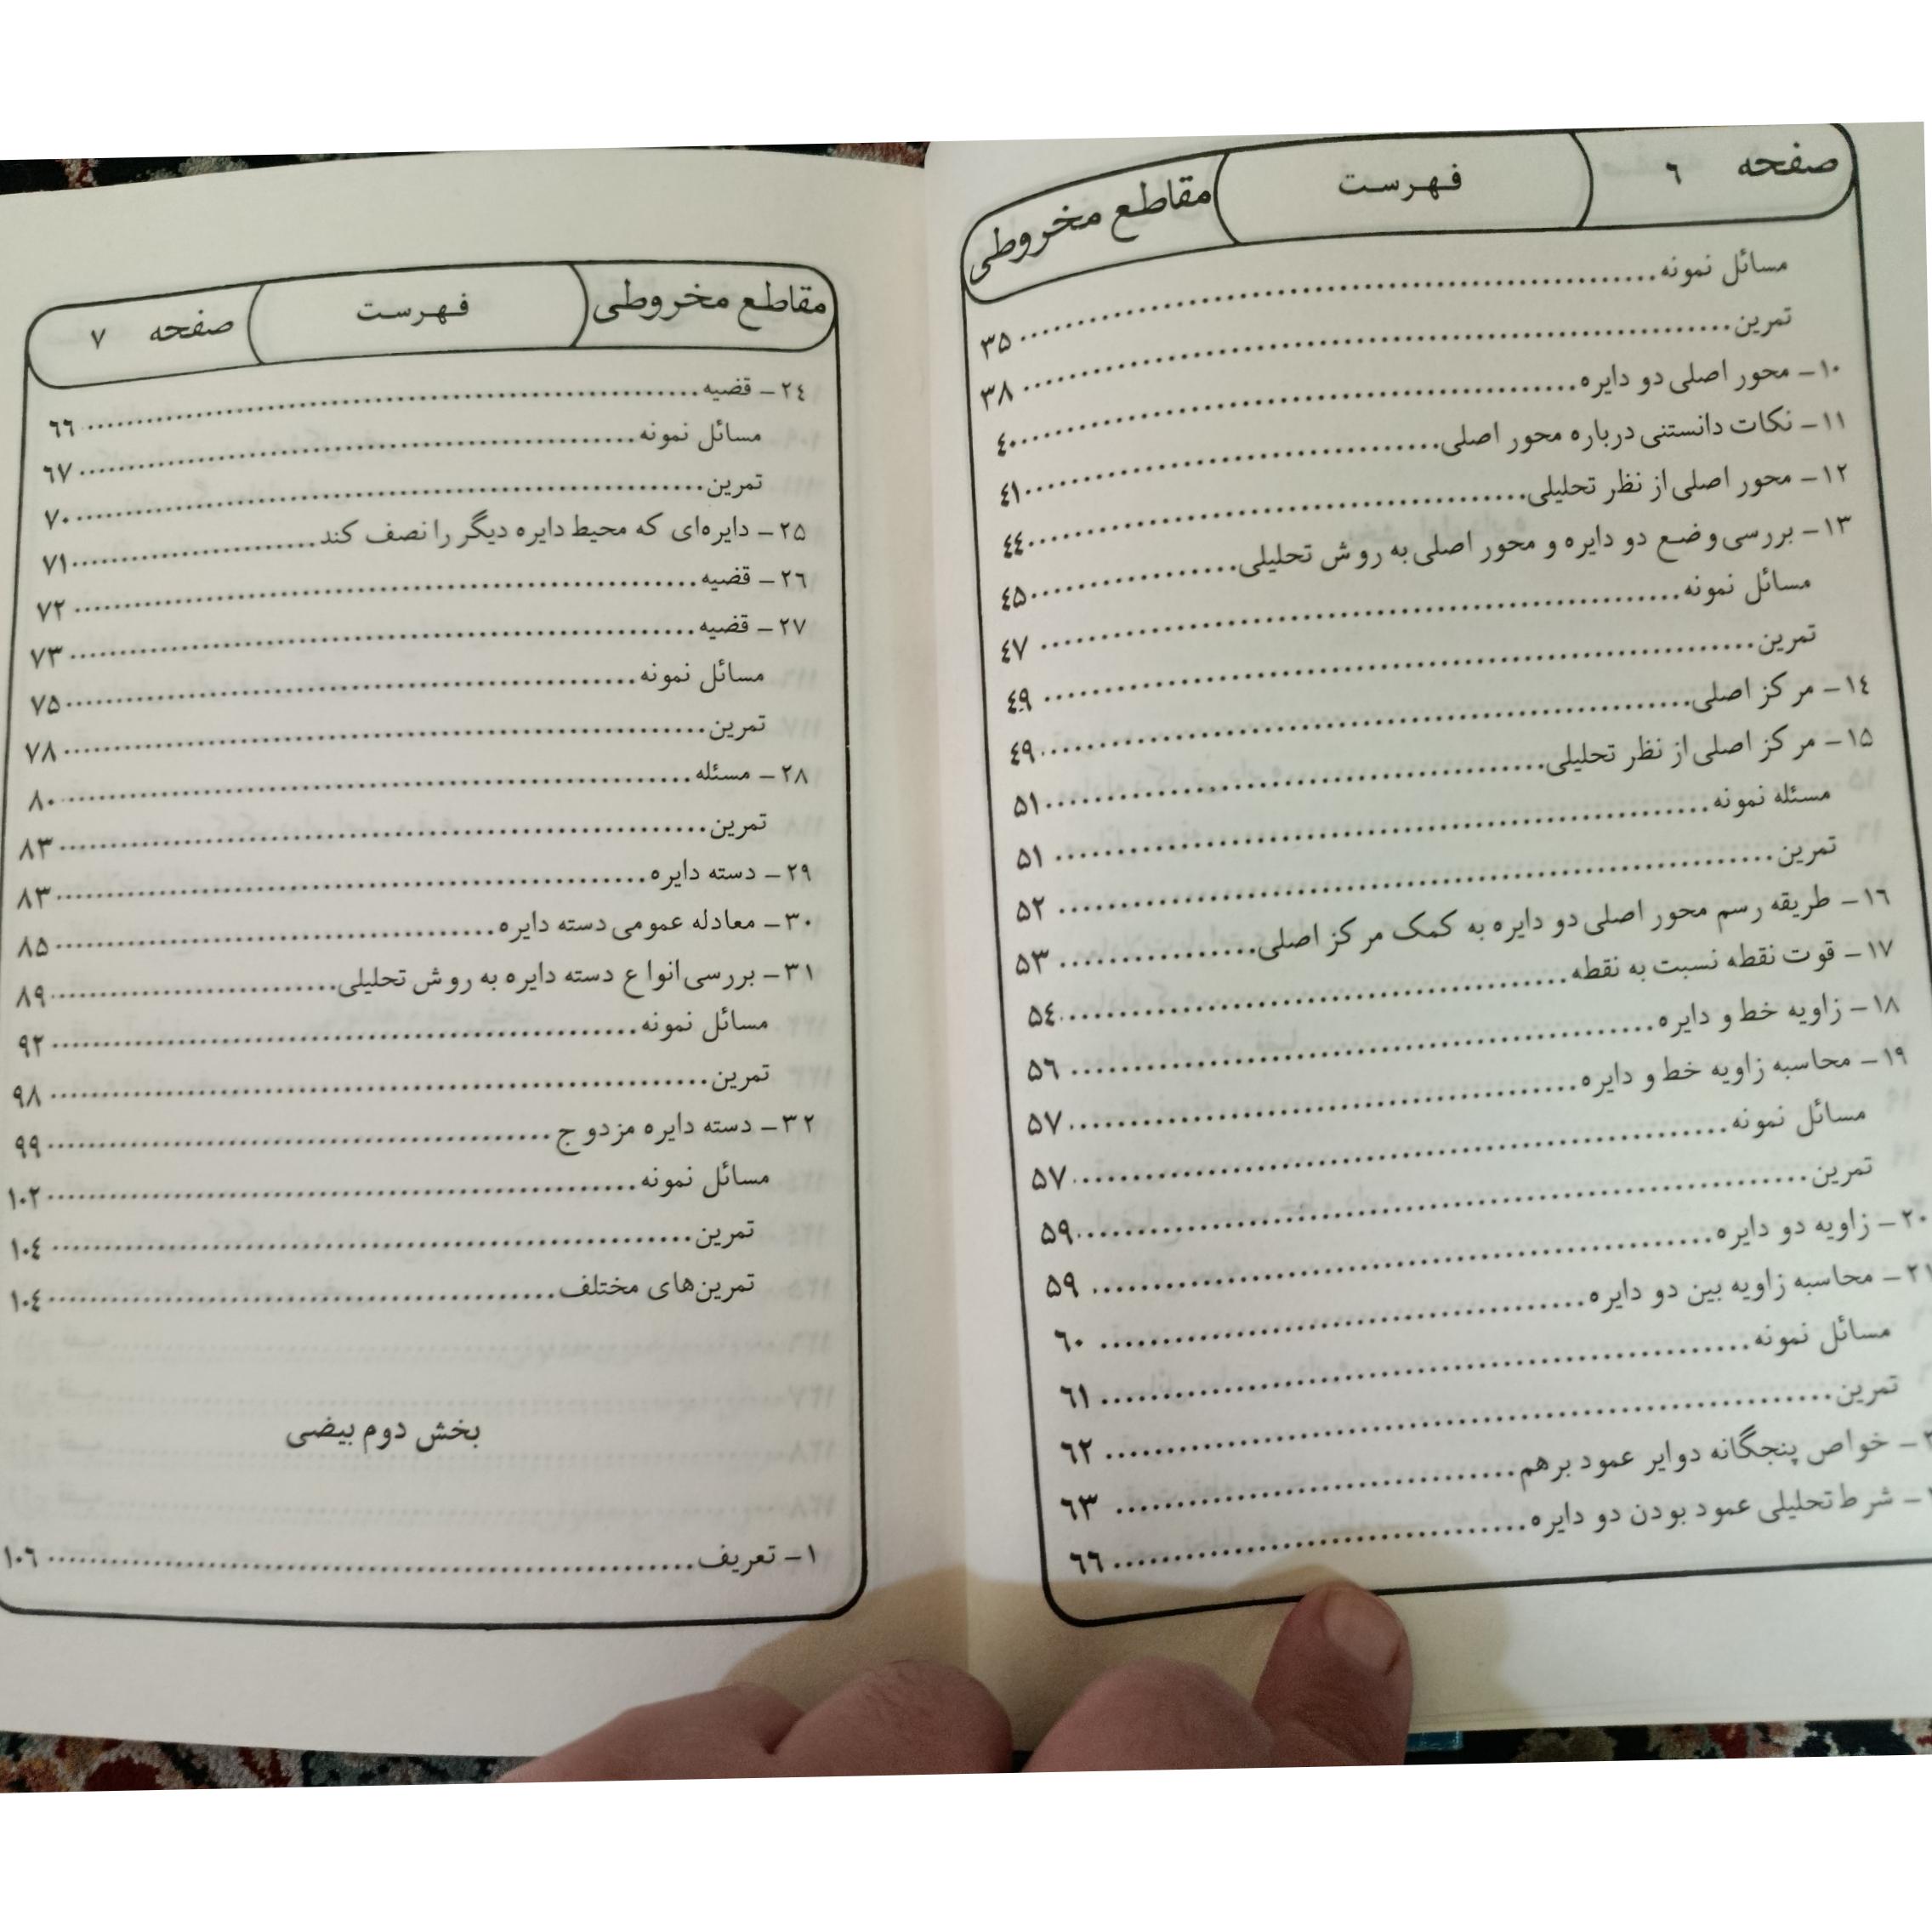 صفحه ٦ فهرست مقاطع مخروطی
مسائل نمونه ........ ٣۵
تمرین ........ ٣٨
١٠ـ محور اصلی دو دایره ........ ٤٠
١١ـ نکات دانستنی درباره محور اصلی ........ ٤١
١٢ـ محور اصلی از نظر تحلیلی ........ ٤٤
١٣ـ بررسی وضع دو دایره و محور اصلی به روش تحلیلی ........ ٤۵
مسائل نمونه ........ ٤٧
تمرین ........ ٤٩
١٤ـ مرکز اصلی ........ ٤٩
١۵ـ مرکز اصلی از نظر تحلیلی ........ ۵١
مسئله نمونه ........ ۵١
تمرین ........ ۵٢
١٦ـ طریقه رسم محور اصلی دو دایره به کمک مرکز اصلی ........ ۵٣
١٧ـ قوت نقطه نسبت به نقطه ........ ۵٤
١٨ـ زاویه خط و دایره ........ ۵٦
١٩ـ محاسبه زاویه خط و دایره ........ ۵٧
مسائل نمونه ........ ۵٧
تمرین ........ ۵٩
٢٠ـ زاویه دو دایره ........ ۵٩
٢١ـ محاسبه زاویه بین دو دایره ........ ٦٠
مسائل نمونه ........ ٦١
تمرین ........ ٦٢
ـ خواص پنجگانه دوایر عمود برهم ........ ٦٣
ـ شرط تحلیلی عمود بودن دو دایره ........ ٦٦
مقاطع مخروطی فهرست صفحه ٧
٢٤ـ قضیه ........ ٦٦
مسائل نمونه ........ ٦٧
تمرین ........ ٧٠
٢۵ـ دایره‌ای که محیط دایره دیگر را نصف کند ........ ٧١
٢٦ـ قضیه ........ ٧٢
٢٧ـ قضیه ........ ٧٣
مسائل نمونه ........ ٧۵
تمرین ........ ٧٨
٢٨ـ مسئله ........ ٨٠
تمرین ........ ٨٣
٢٩ـ دسته دایره ........ ٨٣
٣٠ـ معادله عمومی دسته دایره ........ ٨۵
٣١ـ بررسی انواع دسته دایره به روش تحلیلی ........ ٨٩
مسائل نمونه ........ ٩٢
تمرین ........ ٩٨
٣٢ـ دسته دایره مزدوج ........ ٩٩
مسائل نمونه ........ ١٠٢
تمرین ........ ١٠٤
تمرین‌های مختلف ........ ١٠٤
بخش دوم بیضی
١ـ تعریف ........ ١٠٦